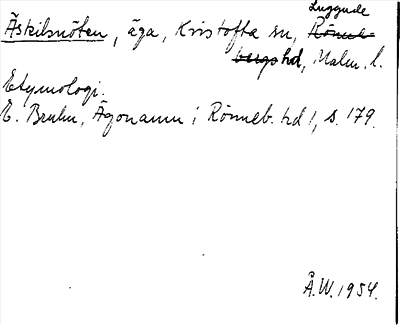 Äskilsnöten, äga, Kristofta sn, Luggude
hd, Malm. l.
Etymologi.
E. Bruhn, Ägonamn i Rönneb. hd 1, s. 179.
Å.W. 1954.